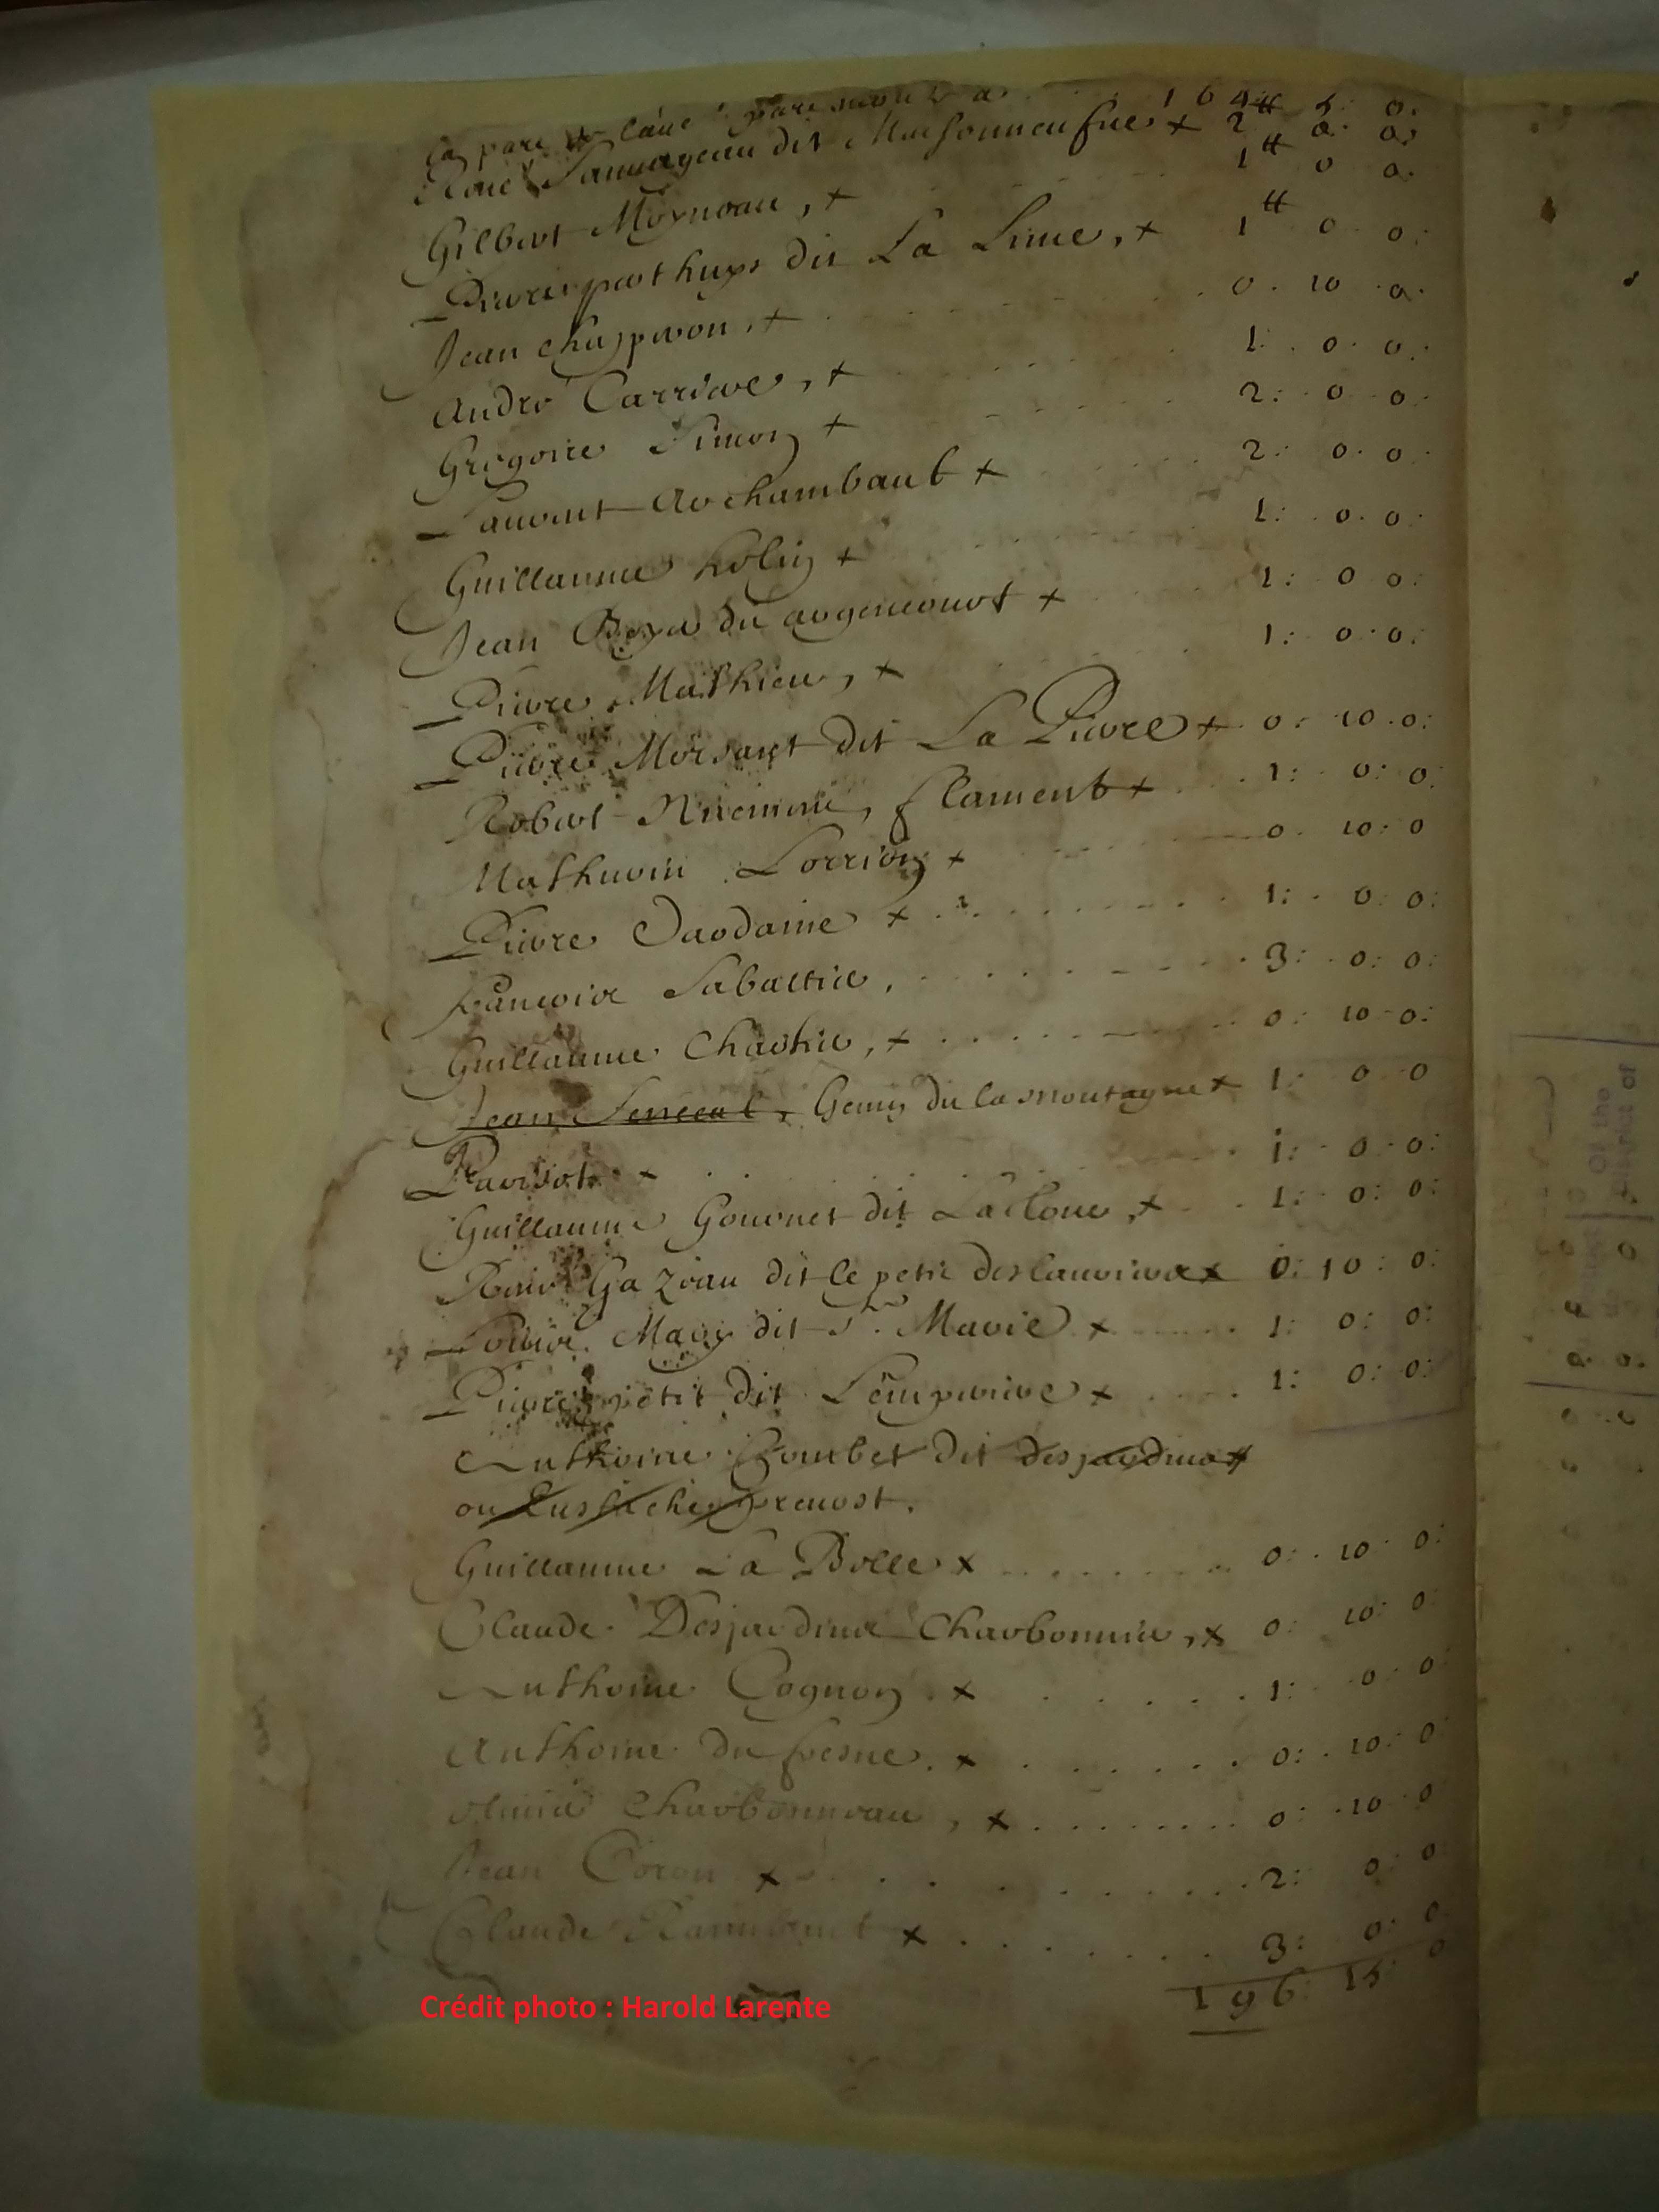 La page de l'autre part monte a . . . 164# 5: 0:
René Sauuageau dit Maisonneufue x 2# 0: 0:
Gilbert Moyneau, x 1# 0 0:
Pierre perthuys dit La Lime, x 1# 0 0:
Jean chapperon, x 0 . 10 . 0.
André Carriere, x 1: . 0 . 0:
Gregoire Simon x 2: 0 0:
Laurent Archambault x 2: 0. 0:
Guillaume Kolin x 1: . 0. 0:
Jean Boyer du argencourt x 1: 0 0:
Pierre Mathieu, x 1: 0. 0:
Pierre Morsant dit La Pierre x 0: 10. 0:
Robert flament x 1: 0: 0:
Mathurin Lorrion x 0 10: 0
Pierre Dardaine x 1: . 0: 0:
françois Sabattier, 3: . 0: 0:
Guillaume Chartier, x 0: 10 0:
Jean Senecal, Genin du la montagne x 1: 0 0
Parisot x 1: 0 0:
Guillaume Gournet dit La clouer, x 1: 0: 0:
René Gazeau dit le petit deslauriers x 0: 10: 0:
Louis Mary dit Ste. Marie x 1: 0: 0:
Pierre petit dit L'empirire x 1: 0: 0:
Anthoine Combet dit desjardins #
ou Eustache preuost.
Guillaume La Belle x 0: 10 0:
Claude Desjardins Charbonnier, x 0: 10: 0:
Anthoine Cognon x 1: 0 0
Anthoine du fresne. x 0: . 10: 0
oliuier Charbonneau, x 0: . 10 0
Jean Coron x 2: 0: 0
Claude Raimbault x 3: 0: 0
196 15 0
Crédit photo : Harold Larente